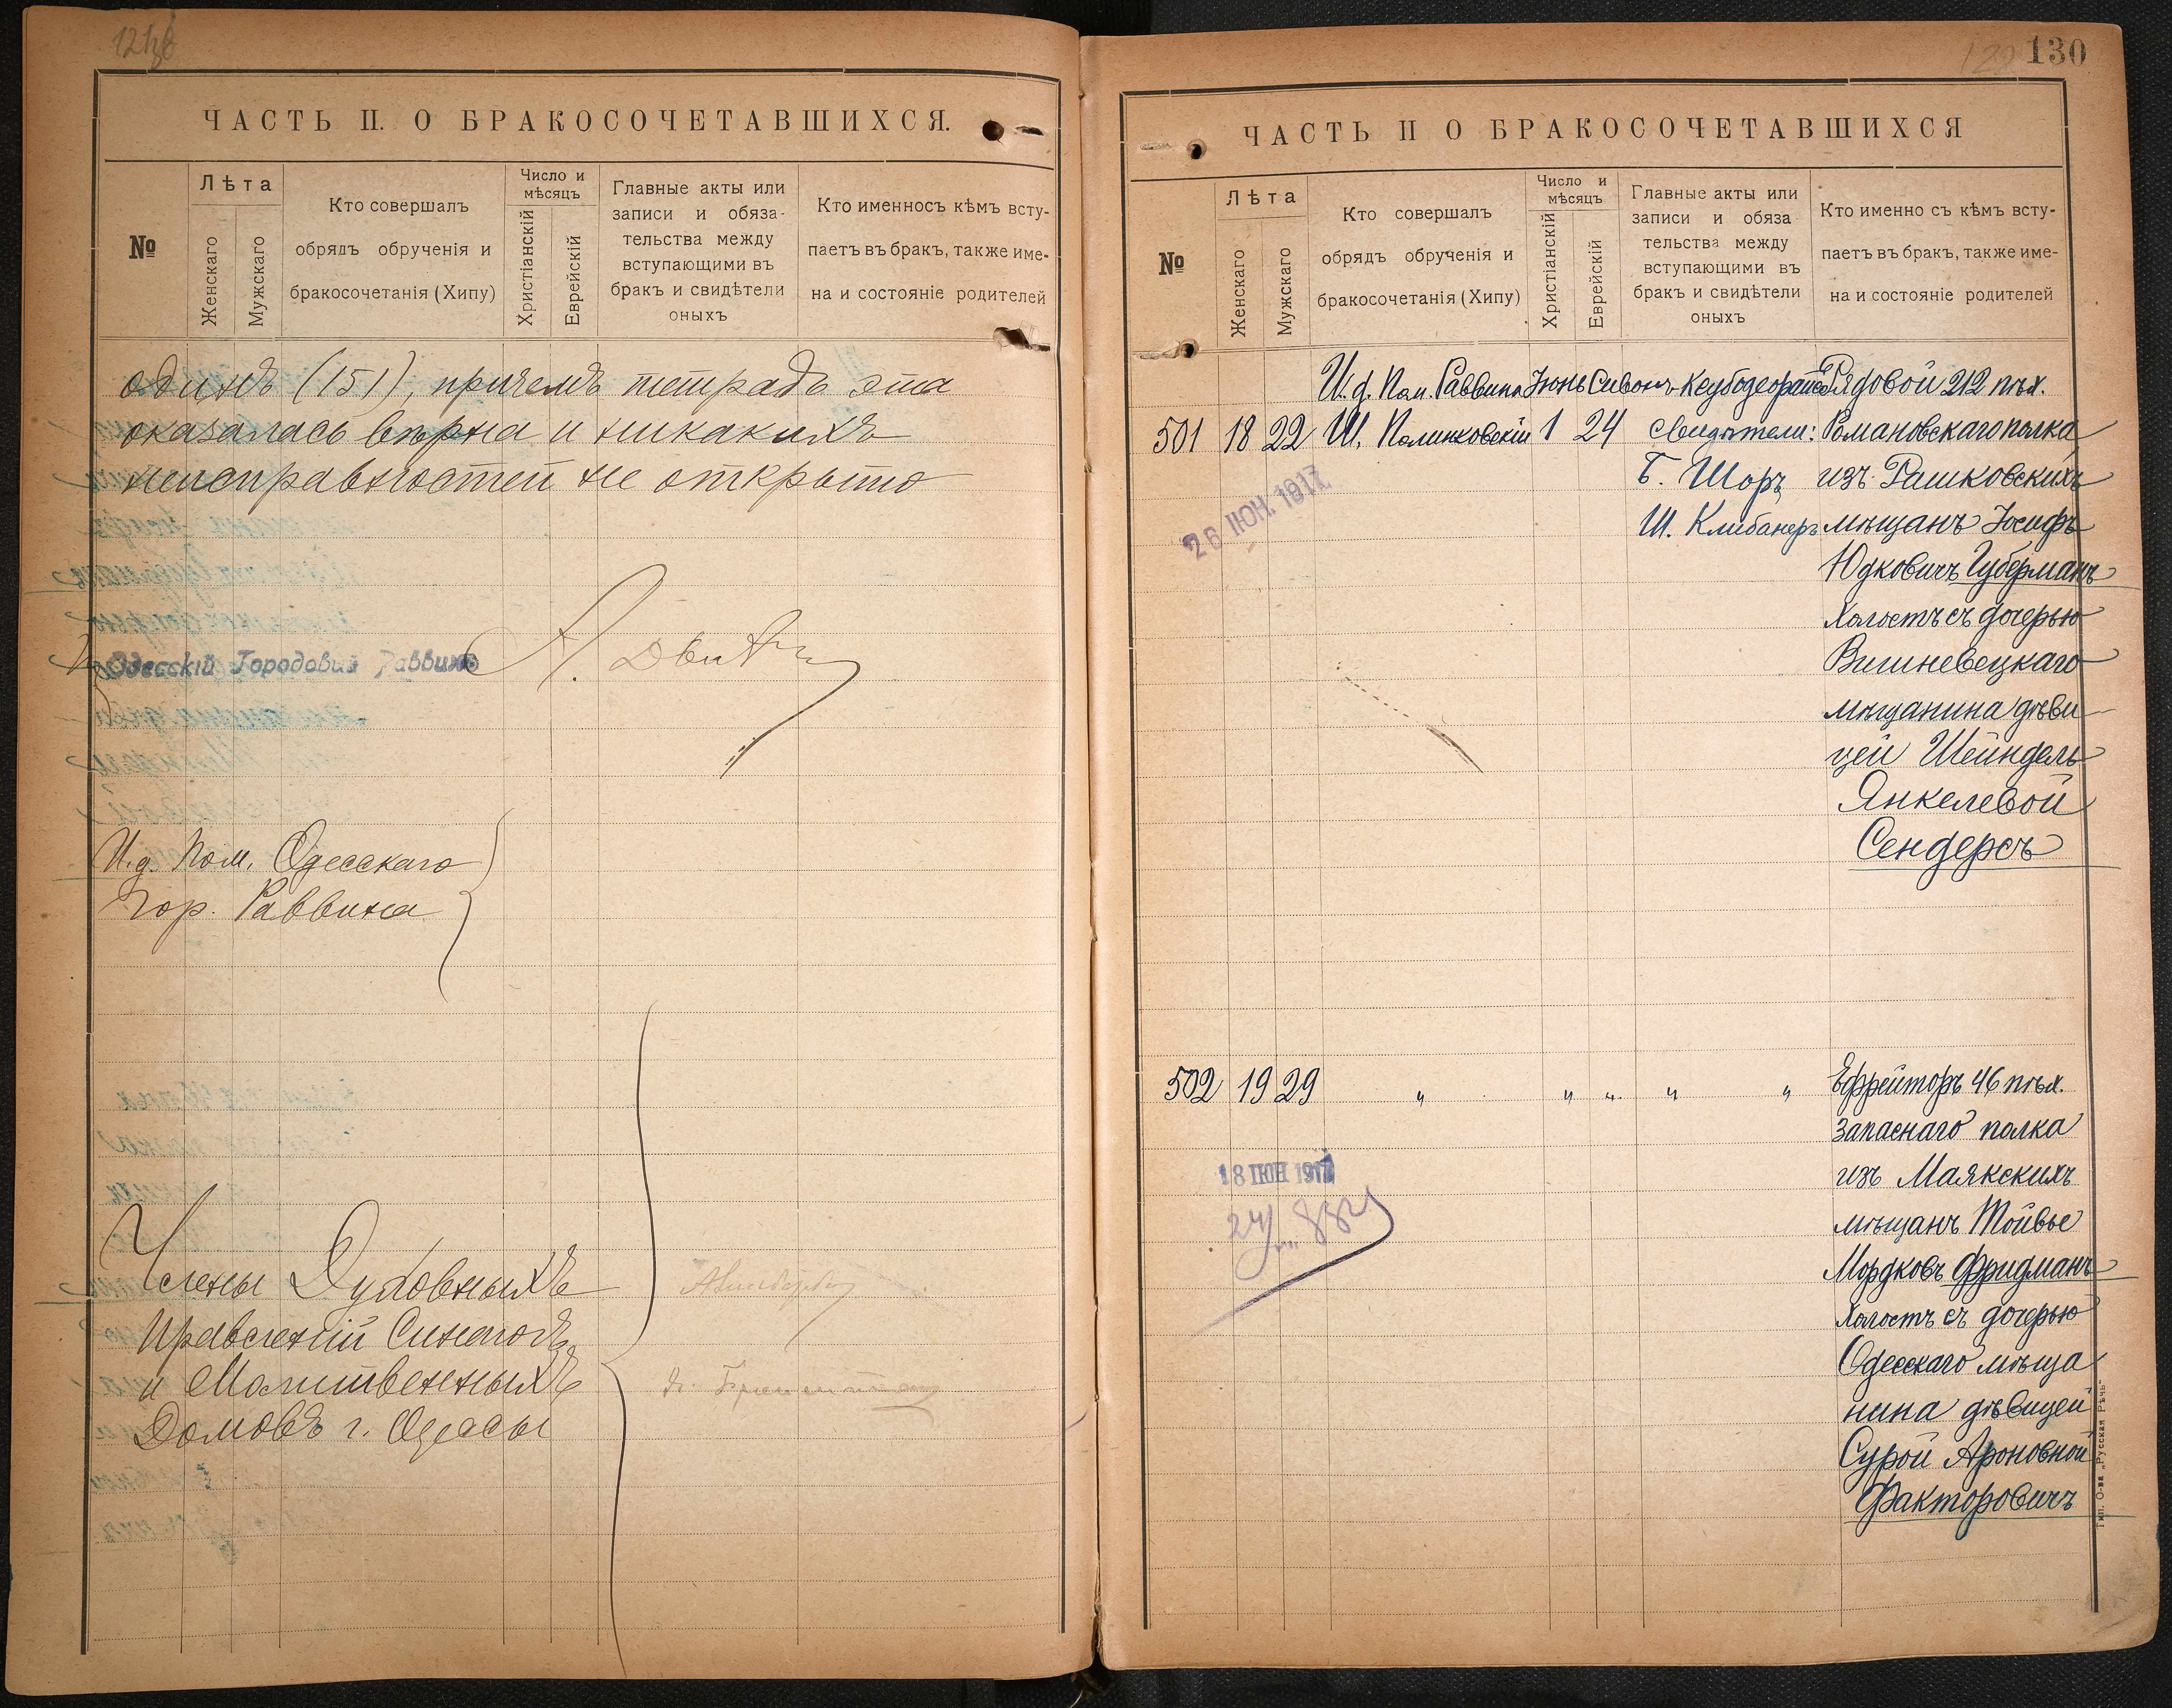 ЧАСТЬ II. О БРАКОСОЧЕТАВШИХСЯ.
№
Лѣта
Женскаго
Мужскаго
Кто совершалъ
обрядъ обрученія и
бракосочетанія (Хипу)
Число и
мѣсяцъ
Христіанскій
Еврейскій
Главные акты или
записи и обяза-
тельства между
вступающими въ
бракъ и свидѣтели
оныхъ
Кто именносъ кѣмъ всту-
паетъ въ бракъ, также име-
на и состояніе родителей
одинъ (151), причемъ тетрадь эта
оказалась вѣрна и никакихъ
неисправностей не открыто
Одесскій Городовий Раввинъ
И.д. Пом. Одесскаго
Гор. Раввина
Члены Духовныхъ
Правленій Синагогъ
и Молитвенныхъ
Домовъ г. Одессы
130
ЧАСТЬ II О БРАКОСОЧЕТАВШИХСЯ
№
Лѣта
Женскаго
Мужскаго
Кто совершалъ
обрядъ обрученія и
бракосочетанія (Хипу)
Число и
мѣсяцъ
Христіанскій
Еврейскій
Главные акты или
записи и обяза
тельства между
вступающими въ
бракъ и свидѣтели
оныхъ
Кто именно съ кѣмъ всту-
паетъ въ бракъ, также име-
на и состояніе родителей
И.д. Пом. Раввина Іюнь Сивонъ Рядовой 212 пѣх.
501 18 22 Ш. Полинковскій 1 24 Свидѣтели: Романовскаго полка
Б. Шоръ изъ Рашковскихъ
Ш. Клибанеръ мѣщанъ Іосифъ
26 ІЮН. 1917
Юдковичъ Губерманъ
холостъ съ дочерью
Вишневецкаго
мѣщанина дѣви
цей Шейндель
Янкелевой
Сендерсъ
502 19 29 " " " " " Ефрейторъ 46 пѣх.
запаснаго полка
18 ІЮН 1917
изъ Маякскихъ
мѣщанъ Тойвье
Мордковъ Фридманъ
холостъ съ дочерью
Одесскаго мѣща
нина дѣвицей
Сурой Ароновной
Факторовичъ
Тип. О-ва „Русская Рѣчь"